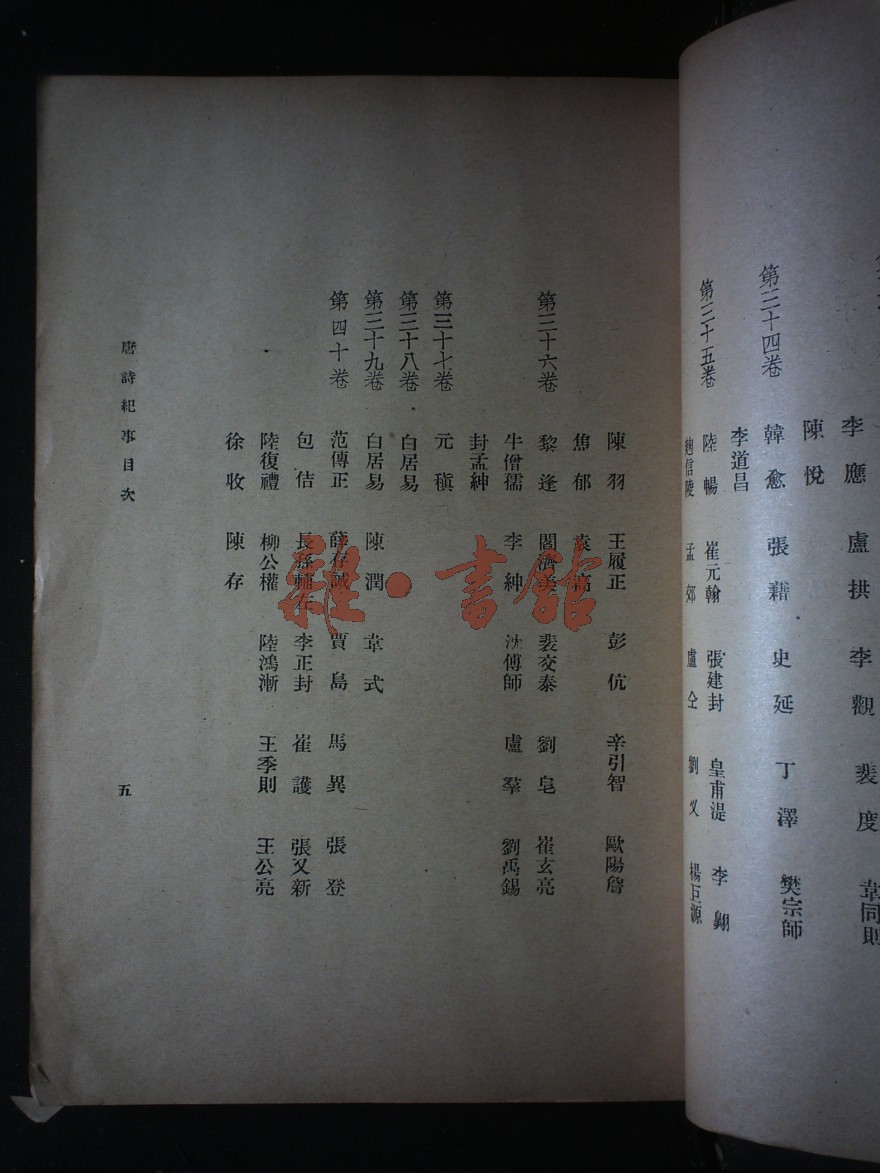 李應 盧拱 李觀 裴度 韋同則
陳悅
第三十四卷 韓愈 張籍 史延 丁澤 樊宗師
李道昌
第三十五卷 陸暢 崔元翰 張建封 皇甫湜 李翱
孟郊 盧仝 劉叉 楊巨源
陳羽 王履正 彭伉 辛引智 歐陽詹
焦郁 袁高
第三十六卷 黎逢 閻濟美 裴交泰 劉皂 崔玄亮
牛僧孺 李紳 沈傅師 盧羣 劉禹錫
封孟紳
第三十七卷 元稹
第三十八卷 白居易
第三十九卷 白居易 陳潤 韋式
第四十卷 范傳正 薛存誠 賈島 馬異 張登
包佶 長孫輔佐 李正封 崔護 張又新
陸復禮 柳公權 陸鴻漸 王季則 王公亮
徐收 陳存
唐詩紀事目次
五
雜·書館